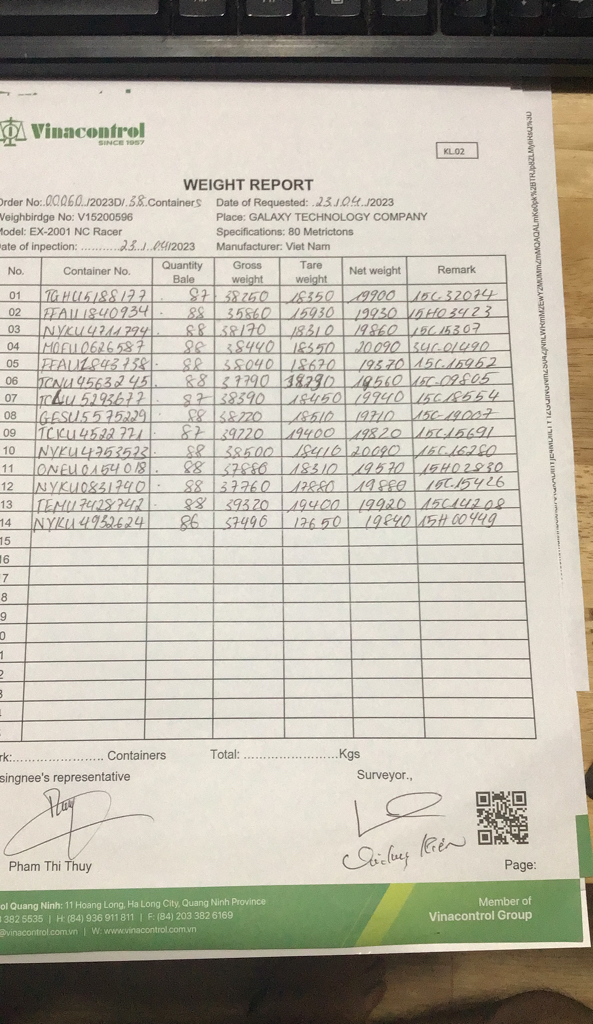 Vinacontrol
SINCE 1957
KL.02
WEIGHT REPORT
Order No: 00060/2023D/ 38 Containers Date of Requested: 23/04/2023
Weighbirdge No: V15200596 Place: GALAXY TECHNOLOGY COMPANY
Model: EX-2001 NC Racer Specifications: 80 Metrictons
Date of inpection: .......... 23/04/2023 Manufacturer: Viet Nam
No. Container No. Quantity Bale Gross weight Tare weight Net weight Remark
01 TGHU5188177 87 38250 18350 19900 15C-32074
02 FFAU1840934 88 35860 15930 19930 15H03423
03 NYKU4711794 88 38170 18310 19860 15C15307
04 88 38440 18350 20090 34C-01490
05 88 38040 18670 19370 15C-15952
06 TCNU4563245 88 37790 19560 15C-09805
07 87 38390 18450 19940 15C18554
08 GESU5575229 88 38220 18510 19710 15C-19007
09 TCKU4522771 87 39220 19400 19820 15C15691
10 NYKU4753523 88 38500 18410 20090 15C16280
11 ONEU0154018 88 37880 18310 19570 15H02830
12 NYKU0831740 88 37760 17880 19880 15C15426
13 TEMU7428742 88 39320 19400 19920 15C14208
14 NYKU4932624 86 37490 17650 19840 15H00449
15
16
7
8
9
0
1
2
3
rk:........................ Containers Total: ........................Kgs
singnee's representative Surveyor.,
Thuy
Pham Thi Thuy
Page:
ol Quang Ninh: 11 Hoang Long, Ha Long City, Quang Ninh Province
382 5535 | H: (84) 936 911 811 | F: (84) 203 382 6169
@vinacontrol.com.vn | W: www.vinacontrol.com.vn
Member of
Vinacontrol Group